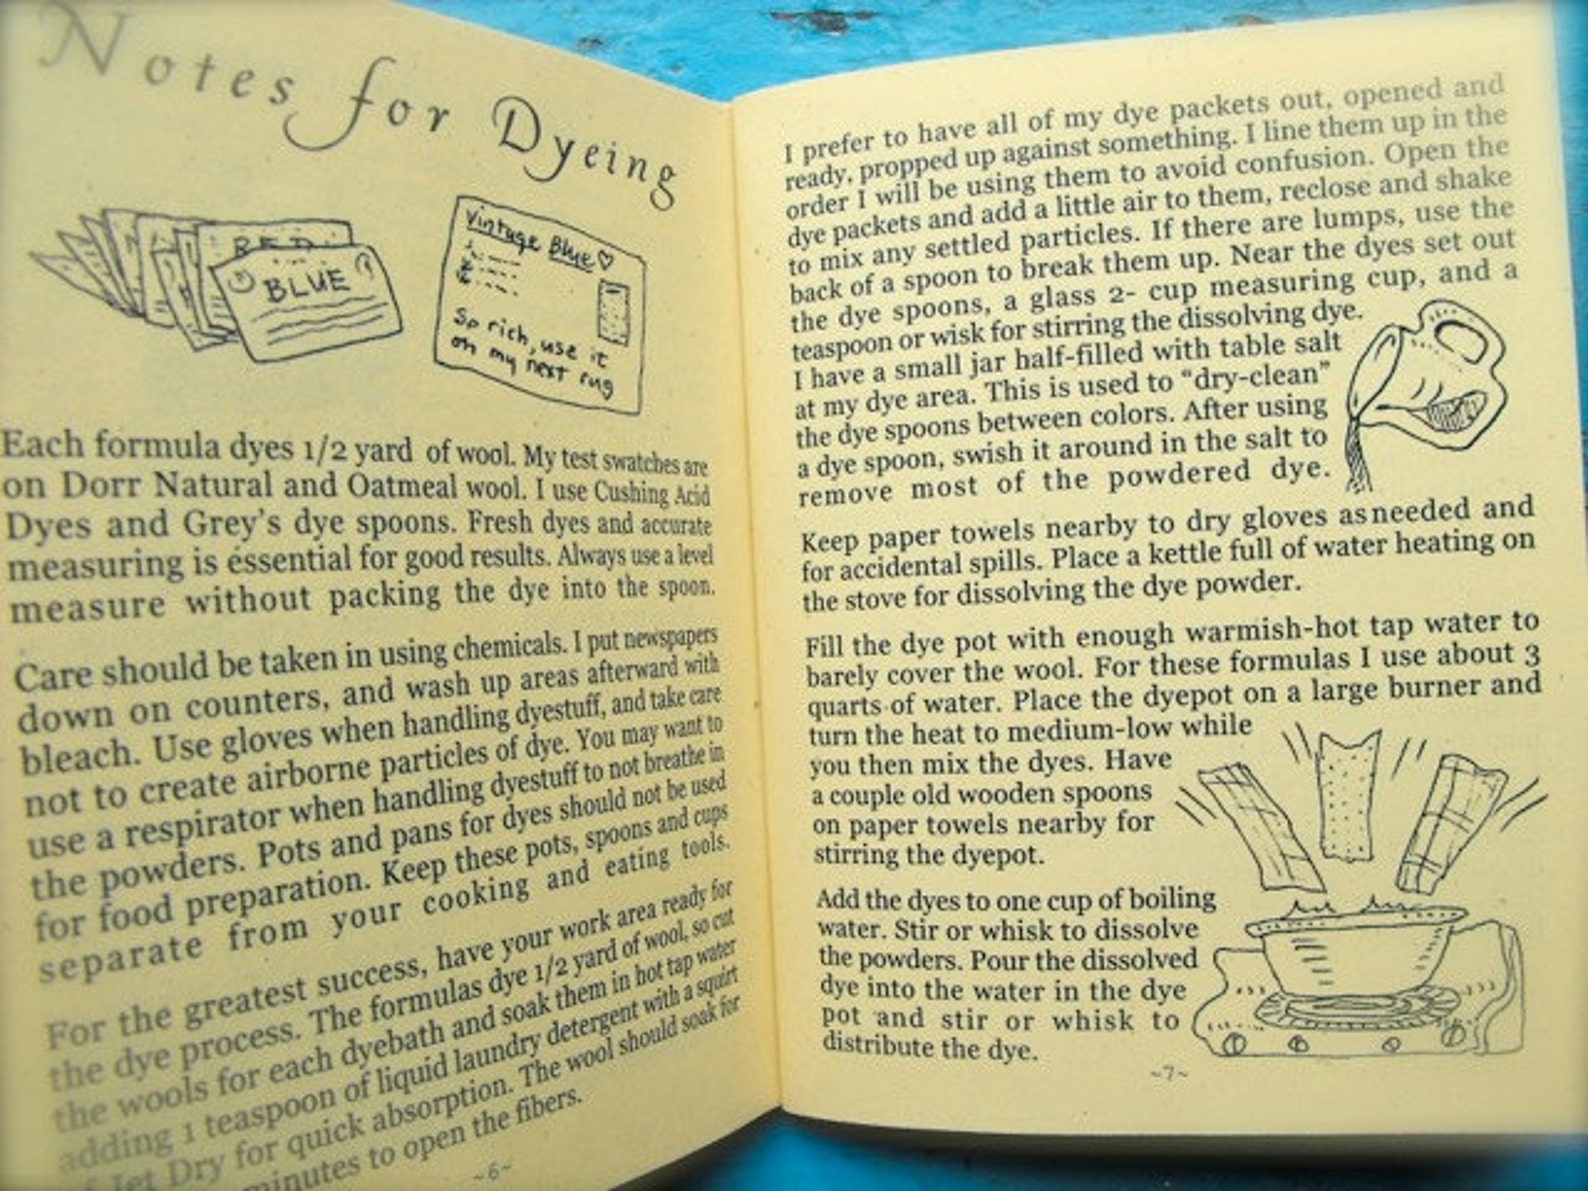 Notes for Dyeing
RED
BLUE
Vintage Blue
So rich, use it
on my next rug
Each formula dyes 1/2 yard of wool. My test swatches are
on Dorr Natural and Oatmeal wool. I use Cushing Acid
Dyes and Grey's dye spoons. Fresh dyes and accurate
measuring is essential for good results. Always use a level
measure without packing the dye into the spoon.
Care should be taken in using chemicals. I put newspapers
down on counters, and wash up areas afterward with
bleach. Use gloves when handling dyestuff, and take care
not to create airborne particles of dye. You may want to
use a respirator when handling dyestuff to not breathe in
the powders. Pots and pans for dyes should not be used
for food preparation. Keep these pots, spoons and cups
separate from your cooking and eating tools.
For the greatest success, have your work area ready for
the dye process. The formulas dye 1/2 yard of wool, so cut
the wools for each dyebath and soak them in hot tap water
adding 1 teaspoon of liquid laundry detergent with a squirt
of Jet Dry for quick absorption. The wool should soak for
minutes to open the fibers.
~6~
I prefer to have all of my dye packets out, opened and
ready, propped up against something. I line them up in the
order I will be using them to avoid confusion. Open the
dye packets and add a little air to them, reclose and shake
to mix any settled particles. If there are lumps, use the
back of a spoon to break them up. Near the dyes set out
the dye spoons, a glass 2- cup measuring cup, and a
teaspoon or wisk for stirring the dissolving dye.
I have a small jar half-filled with table salt
at my dye area. This is used to "dry-clean"
the dye spoons between colors. After using
a dye spoon, swish it around in the salt to
remove most of the powdered dye.
Keep paper towels nearby to dry gloves as needed and
for accidental spills. Place a kettle full of water heating on
the stove for dissolving the dye powder.
Fill the dye pot with enough warmish-hot tap water to
barely cover the wool. For these formulas I use about 3
quarts of water. Place the dyepot on a large burner and
turn the heat to medium-low while
you then mix the dyes. Have
a couple old wooden spoons
on paper towels nearby for
stirring the dyepot.
Add the dyes to one cup of boiling
water. Stir or whisk to dissolve
the powders. Pour the dissolved
dye into the water in the dye
pot and stir or whisk to
distribute the dye.
~7~